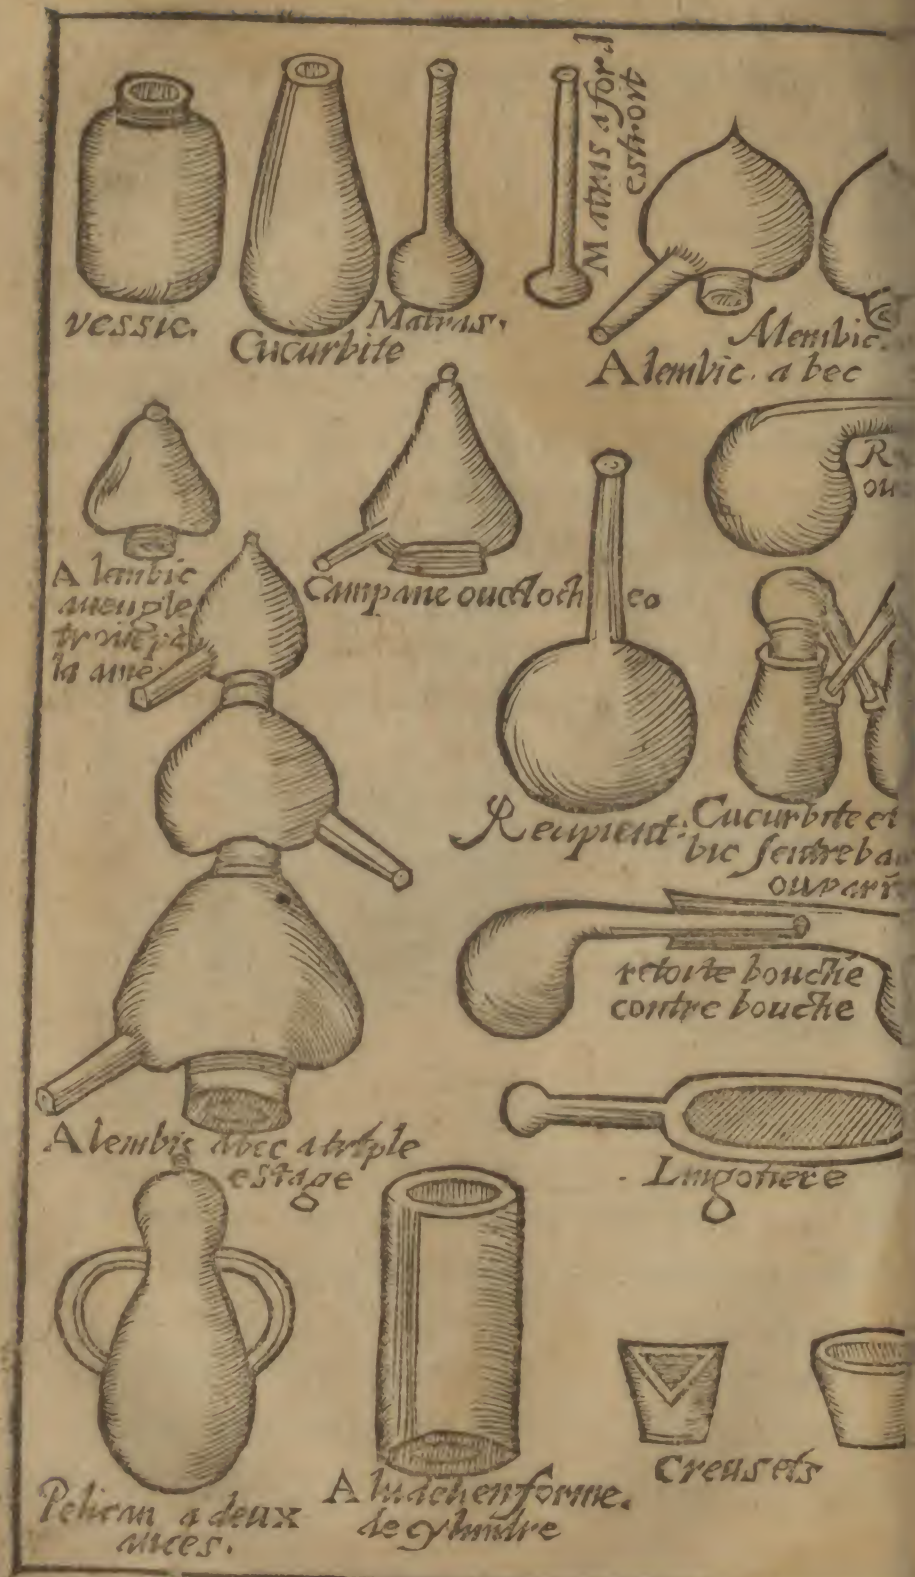 vessie.
Cucurbite
Matras.
Matras a
estroit
Alembic.
Alembic. a bec
R
ou
Alembic
aueugle
la
Campane ou cloch
Recipient.
Cucurbite et
bic sentreba
ou par
retorte bouche
contre bouche
Alembic abec a triple
estage
Lingotiere
Pelican a deux
ances.
Aludel en forme.
de cylindre
creusets